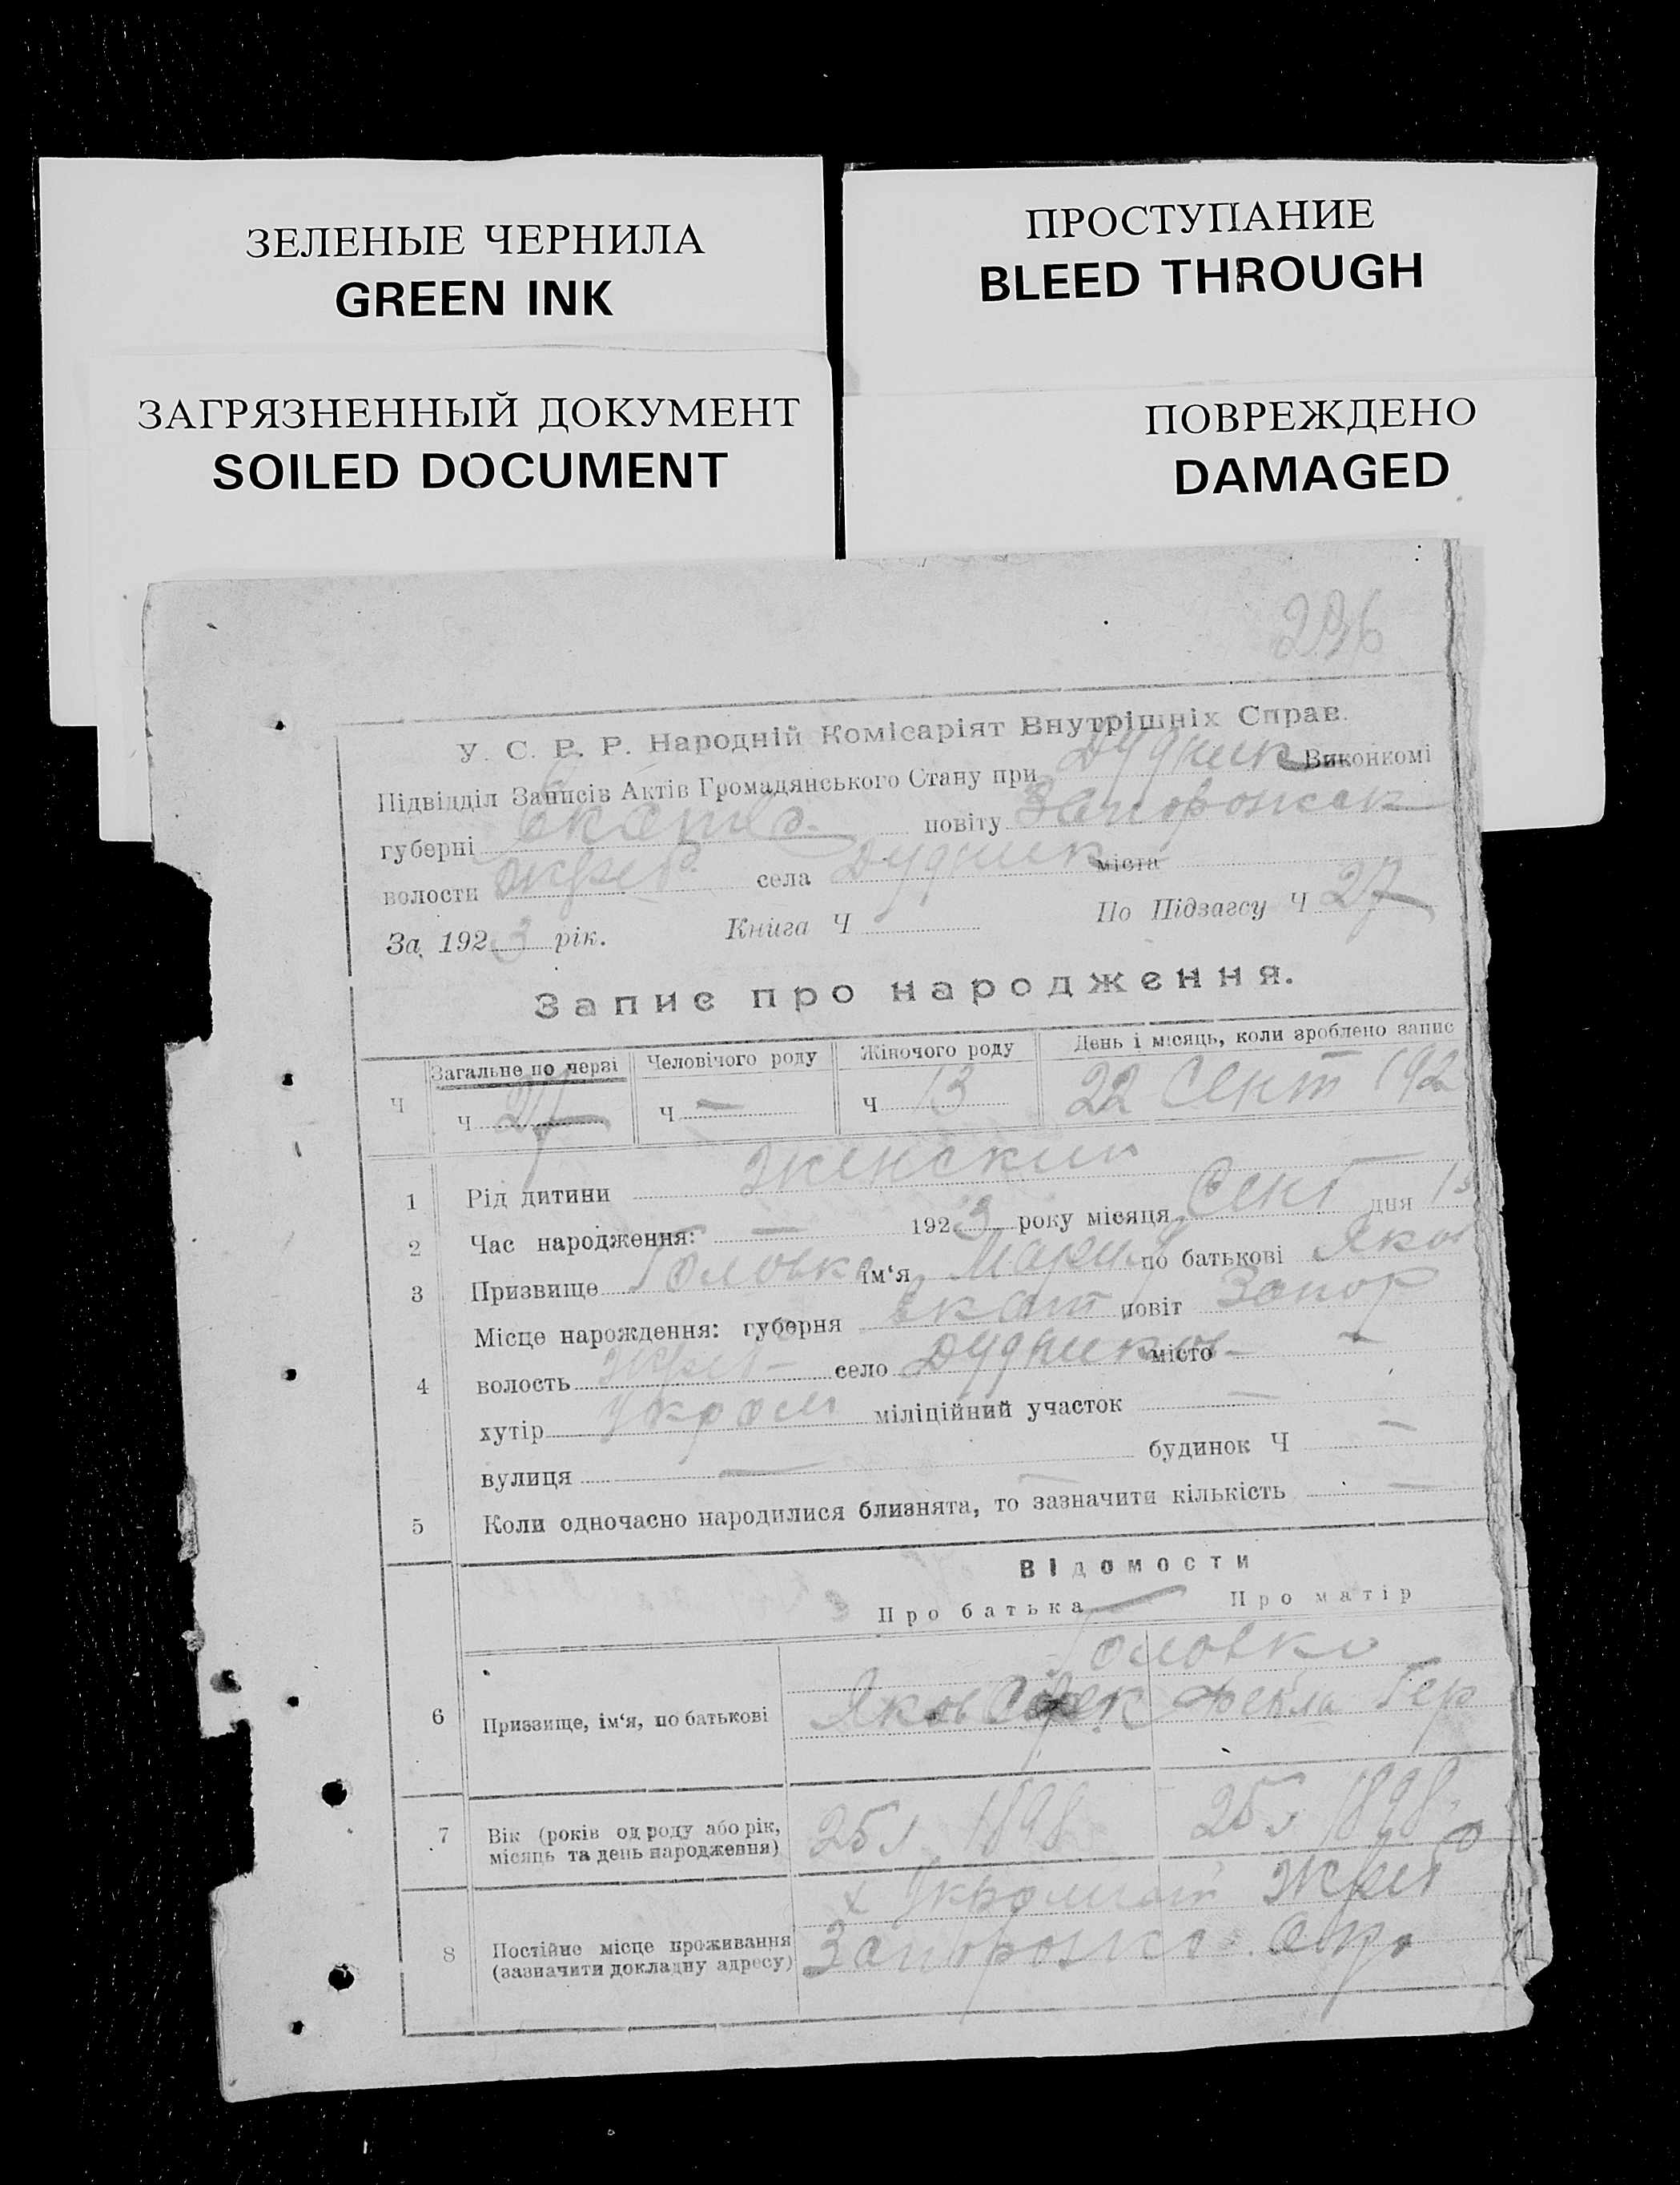 ЗЕЛЕНЫЕ ЧЕРНИЛА
GREEN INK
ПРОСТУПАНИЕ
BLEED THROUGH
ЗАГРЯЗНЕННЫЙ ДОКУМЕНТ
SOILED DOCUMENT
ПОВРЕЖДЕНО
DAMAGED
У. С. Р. Р. Народній Комісаріят Внутрішніх Справ.
Підвідділ Записів Актів Громадянського Стану при Дудник Виконкомі
губерні Екат повіту Запорожск
волости Жереб села Дудник міста
За 1923 рік. Книга Ч По Підзагсу Ч 27
Запис про народження.
Загальне по черзі Человічого роду Жіночого роду День і місяць, коли зроблено запис
Ч Ч 27 Ч — Ч 13 22 Сент 192
1 Рід дитини женский
2 Час народження: — 1923 року місяця Сент дня
3 Призвище Головко ім‘я Мария по батькові Яков
Місце народження: губерня Екат повіт Запор
4 волость Жереб село Дудников місто —
хутір міліційний участок —
вулиця — будинок Ч —
5 Коли одночасно народилися близнята, то зазначити кількість —
Відомости
Про батька — Про матір
Головко
6 Призвище, ім‘я, по батькові Яков Фекла Гер
7 Вік (років од роду або рік, місяць та день народження) 25 л 1898 25 л 1898
8 Постійне місце проживання (зазначити докладну адресу) х Жереб
Запорожск окр.